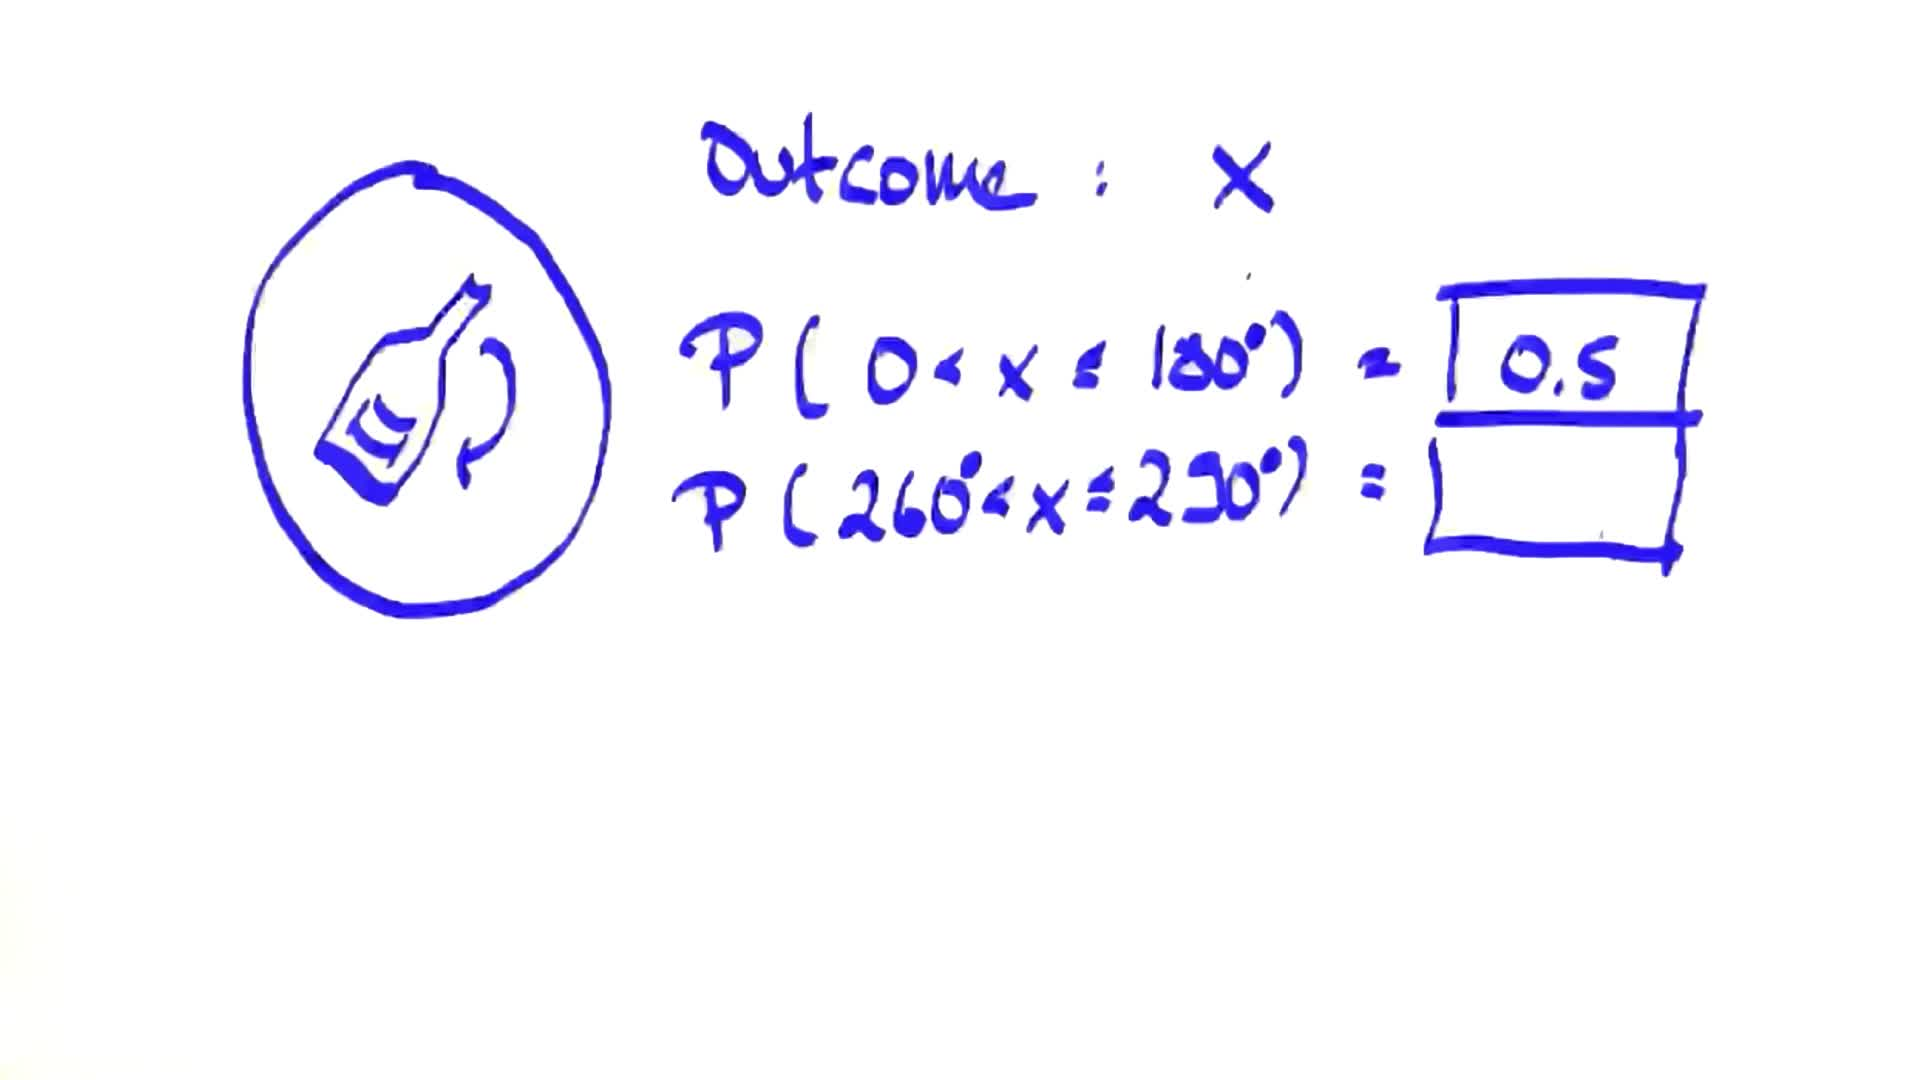 Outcome : X
P ( 0 < x ≤ 180° ) = 0.5
P ( 260° < x ≤ 290° ) =